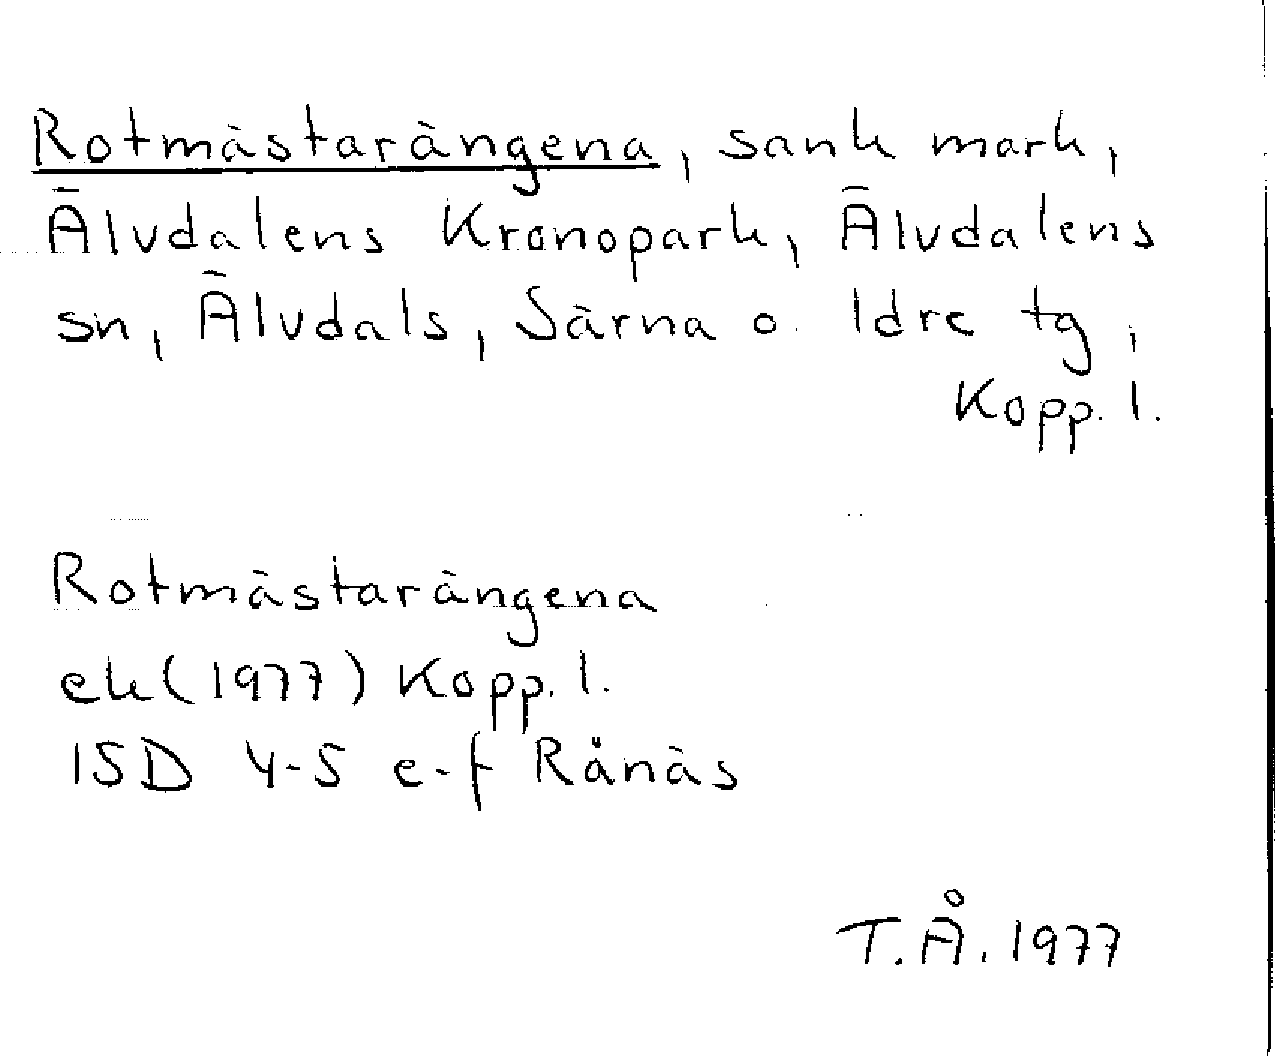 Rotmästarängena, sank mark,
Älvdalens Kronopark, Älvdalens
sn, Älvdals, Särna o. Idre tg,
Kopp. l.
Rotmästarängena
ek (1977) Kopp. l.
15D 4-5 e-f Rånäs
T.Å. 1977